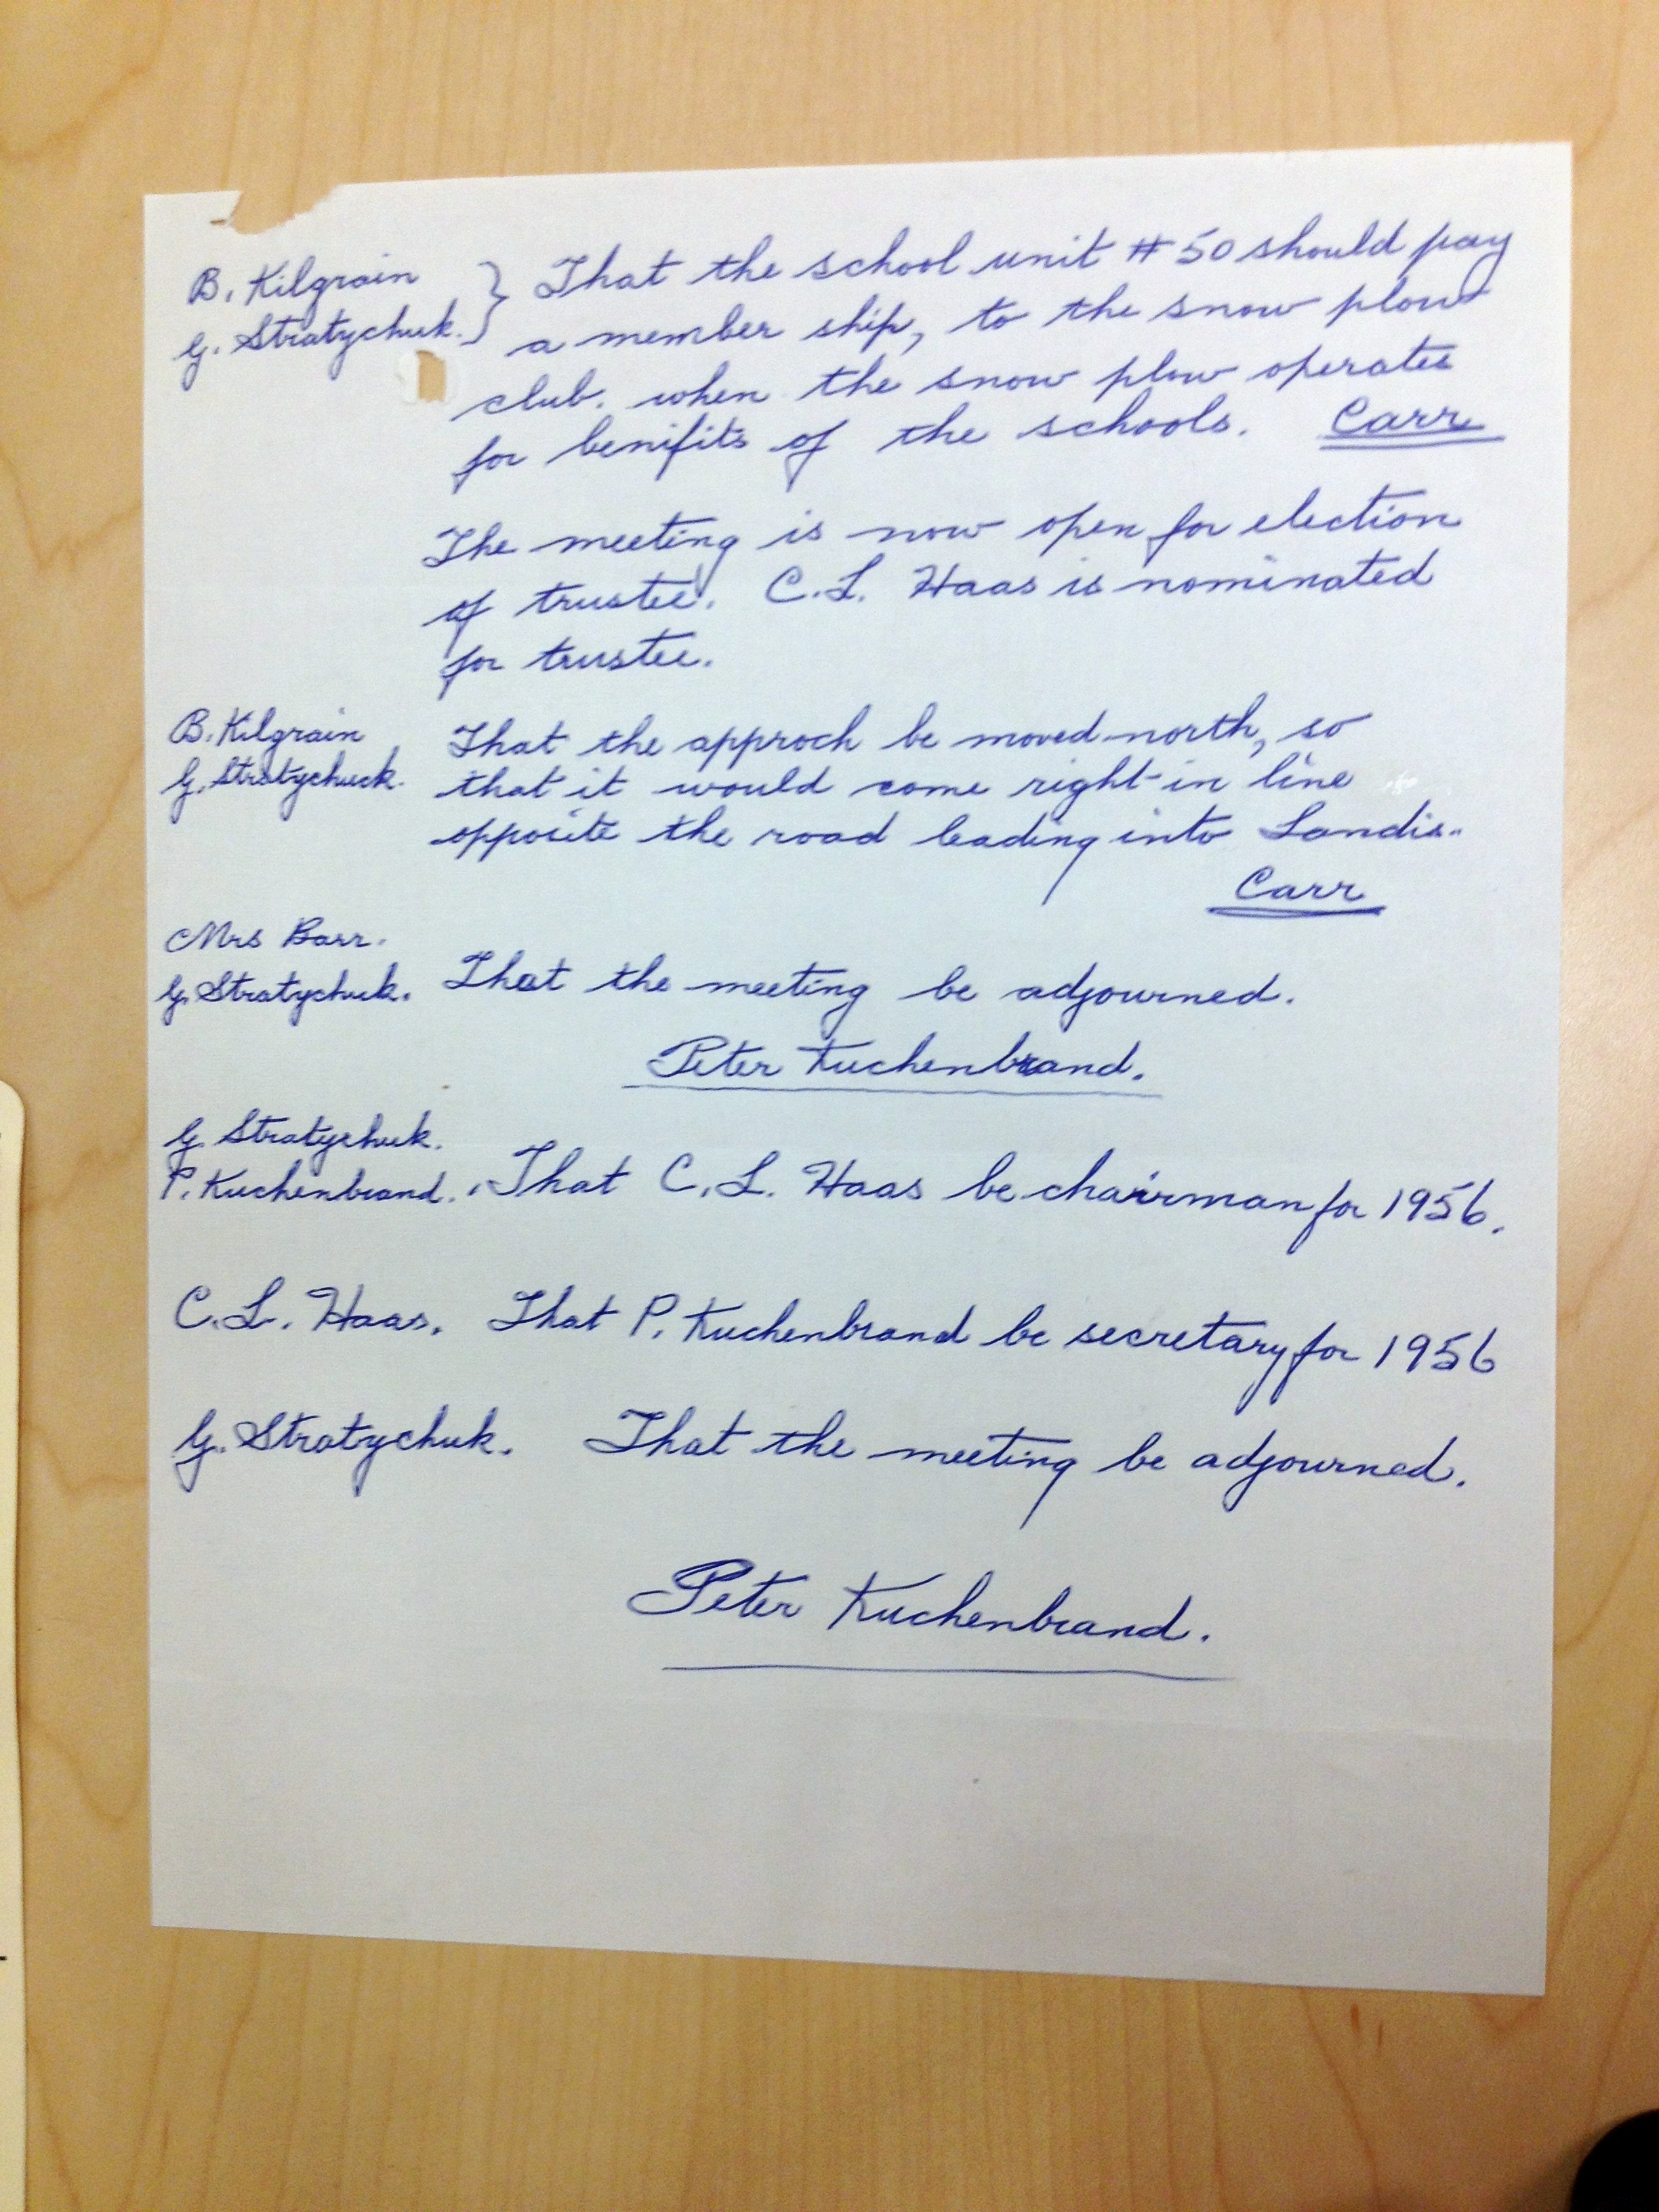 B. Kilgrain } That the school unit #50 should pay
G. Stratychuk. a member ship, to the snow plow
club. when the snow plow operates
for benifits of the schools. Carr
The meeting is now open for election
of trustee. C.L. Haas is nominated
for trustee.
B. Kilgrain That the approch be moved north, so
G. Stratychuck. that it would come right in line
opposite the road leading into Landis.
Carr
Mrs Barr.
G. Stratychuk. That the meeting be adjourned.
Peter Kuchenbrand.
G. Stratychuk.
P. Kuchenbrand. That C.L. Haas be chairman for 1956.
C.L. Haas. That P. Kuchenbrand be secretary for 1956
G. Stratychuk. That the meeting be adjourned.
Peter Kuchenbrand.